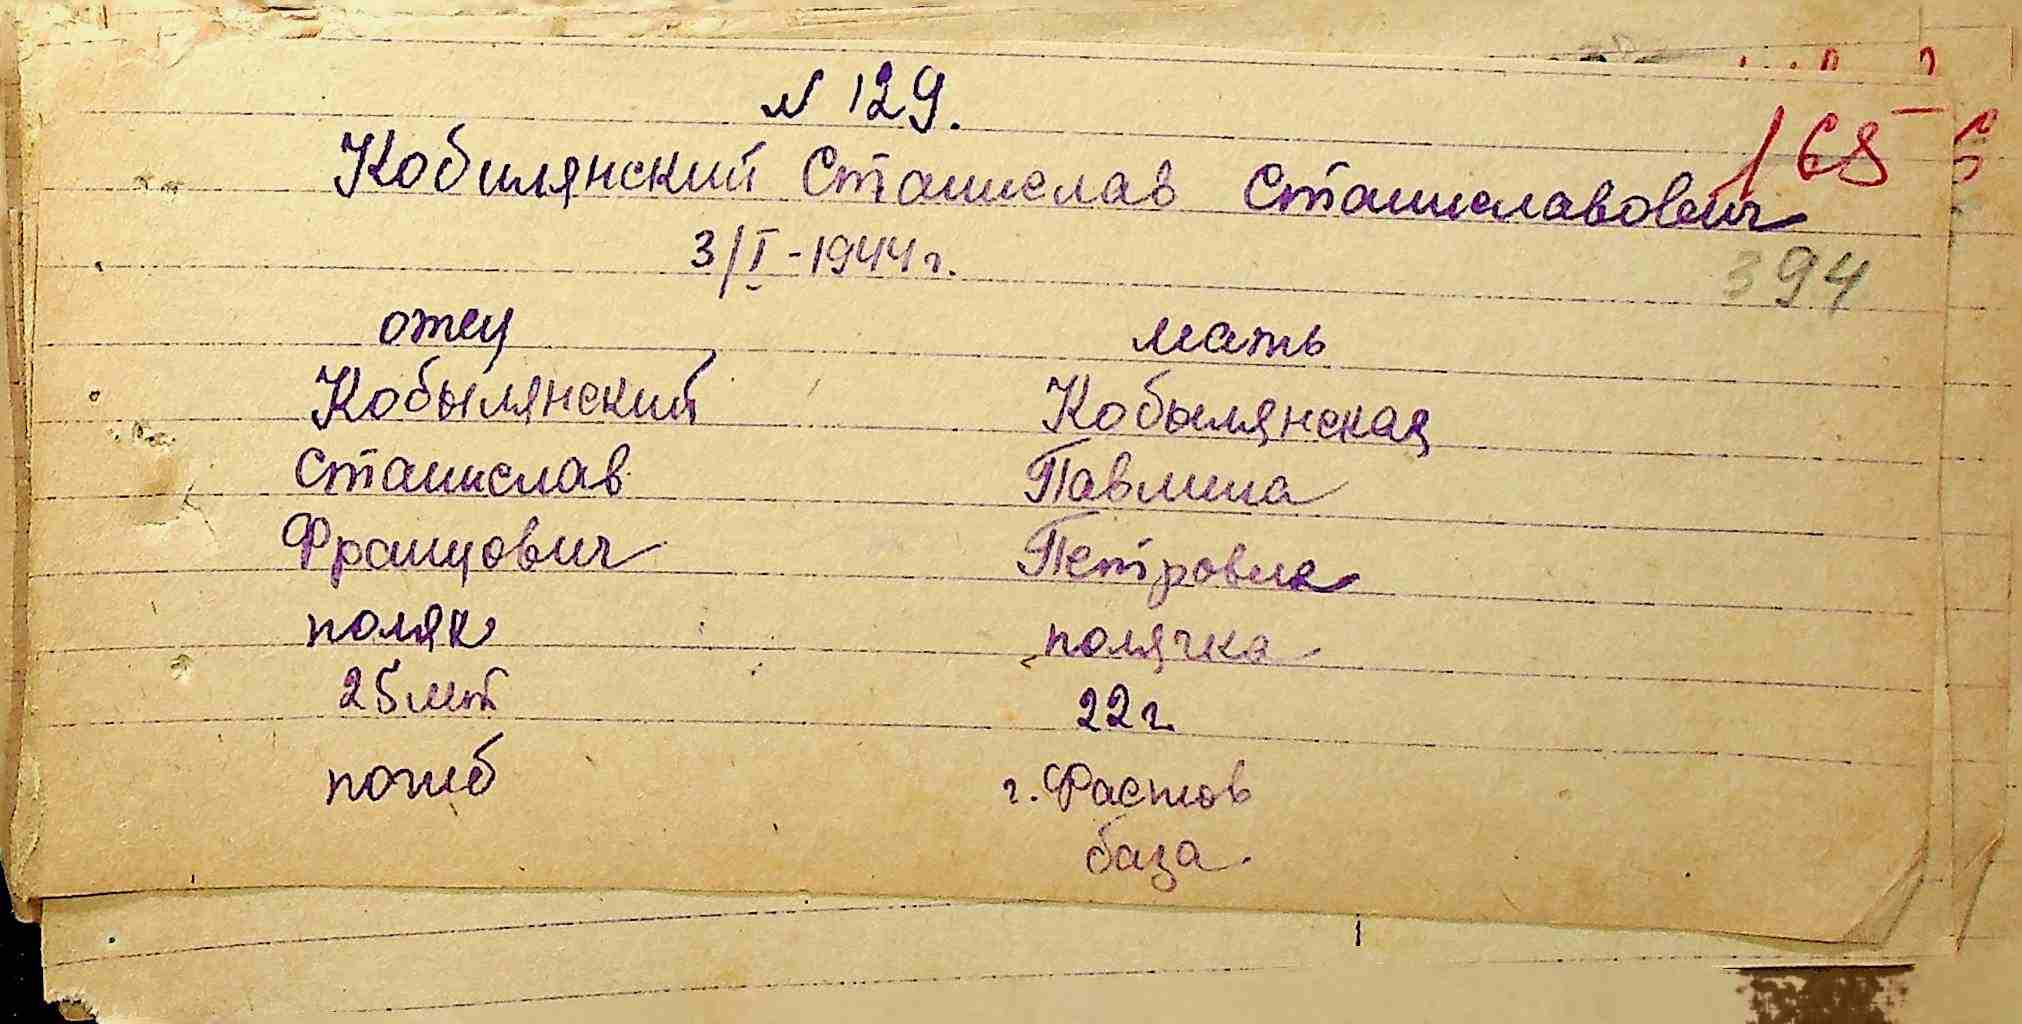 N 129.
168
Кобилянский Станислав Станиславович
3/I-1944г.
394
отец мать
Кобылянский Кобылянская
Станислав Павлина
Францович Петровна
поляк полячка
25 лет 22 г.
погиб г. Фастов
база.